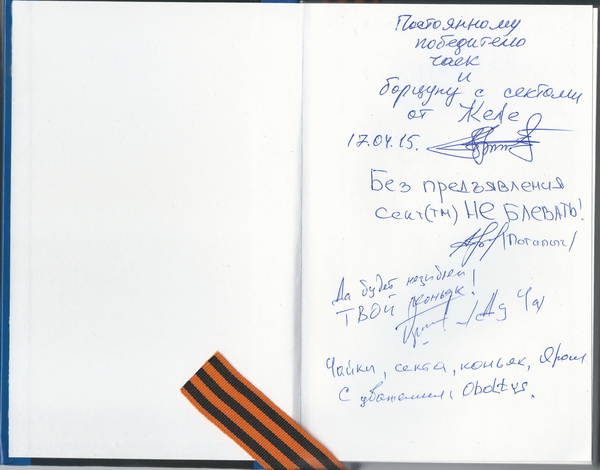 Постоянному
победителю
чаек
и
борцуну с сектами
от Желе
17.04.15.
Без предъявления
сект(тм) НЕ БЛЕВАТЬ!
/Потапыч/
Да будет незыблем
ТВОЙ коньяк!
Чайки, секта, коньяк,
С уважением, Oboltys.